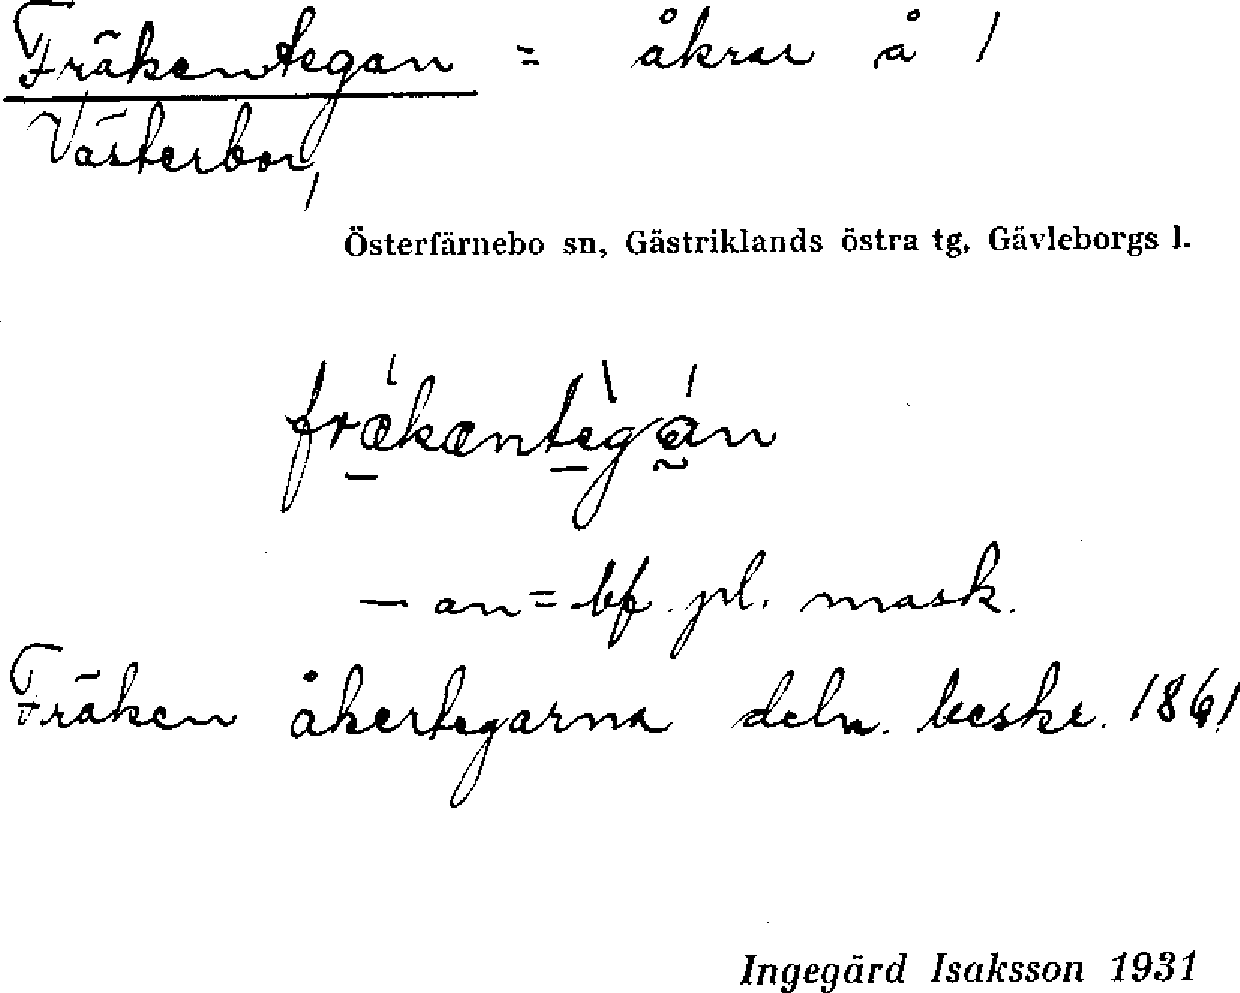 Fräkentegan = åkrar å 1
Västerbor,
Österfärnebo sn, Gästriklands östra tg, Gävleborgs l.
frækæntegan
– an = bf. pl. mask.
Fräken åkertegarna deln. beskr. 1861
Ingegärd Isaksson 1931